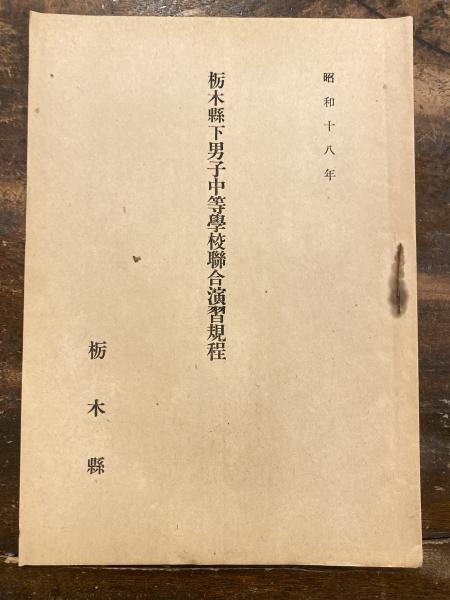 昭和十八年
栃木縣下男子中等學校聯合演習規程
栃木縣